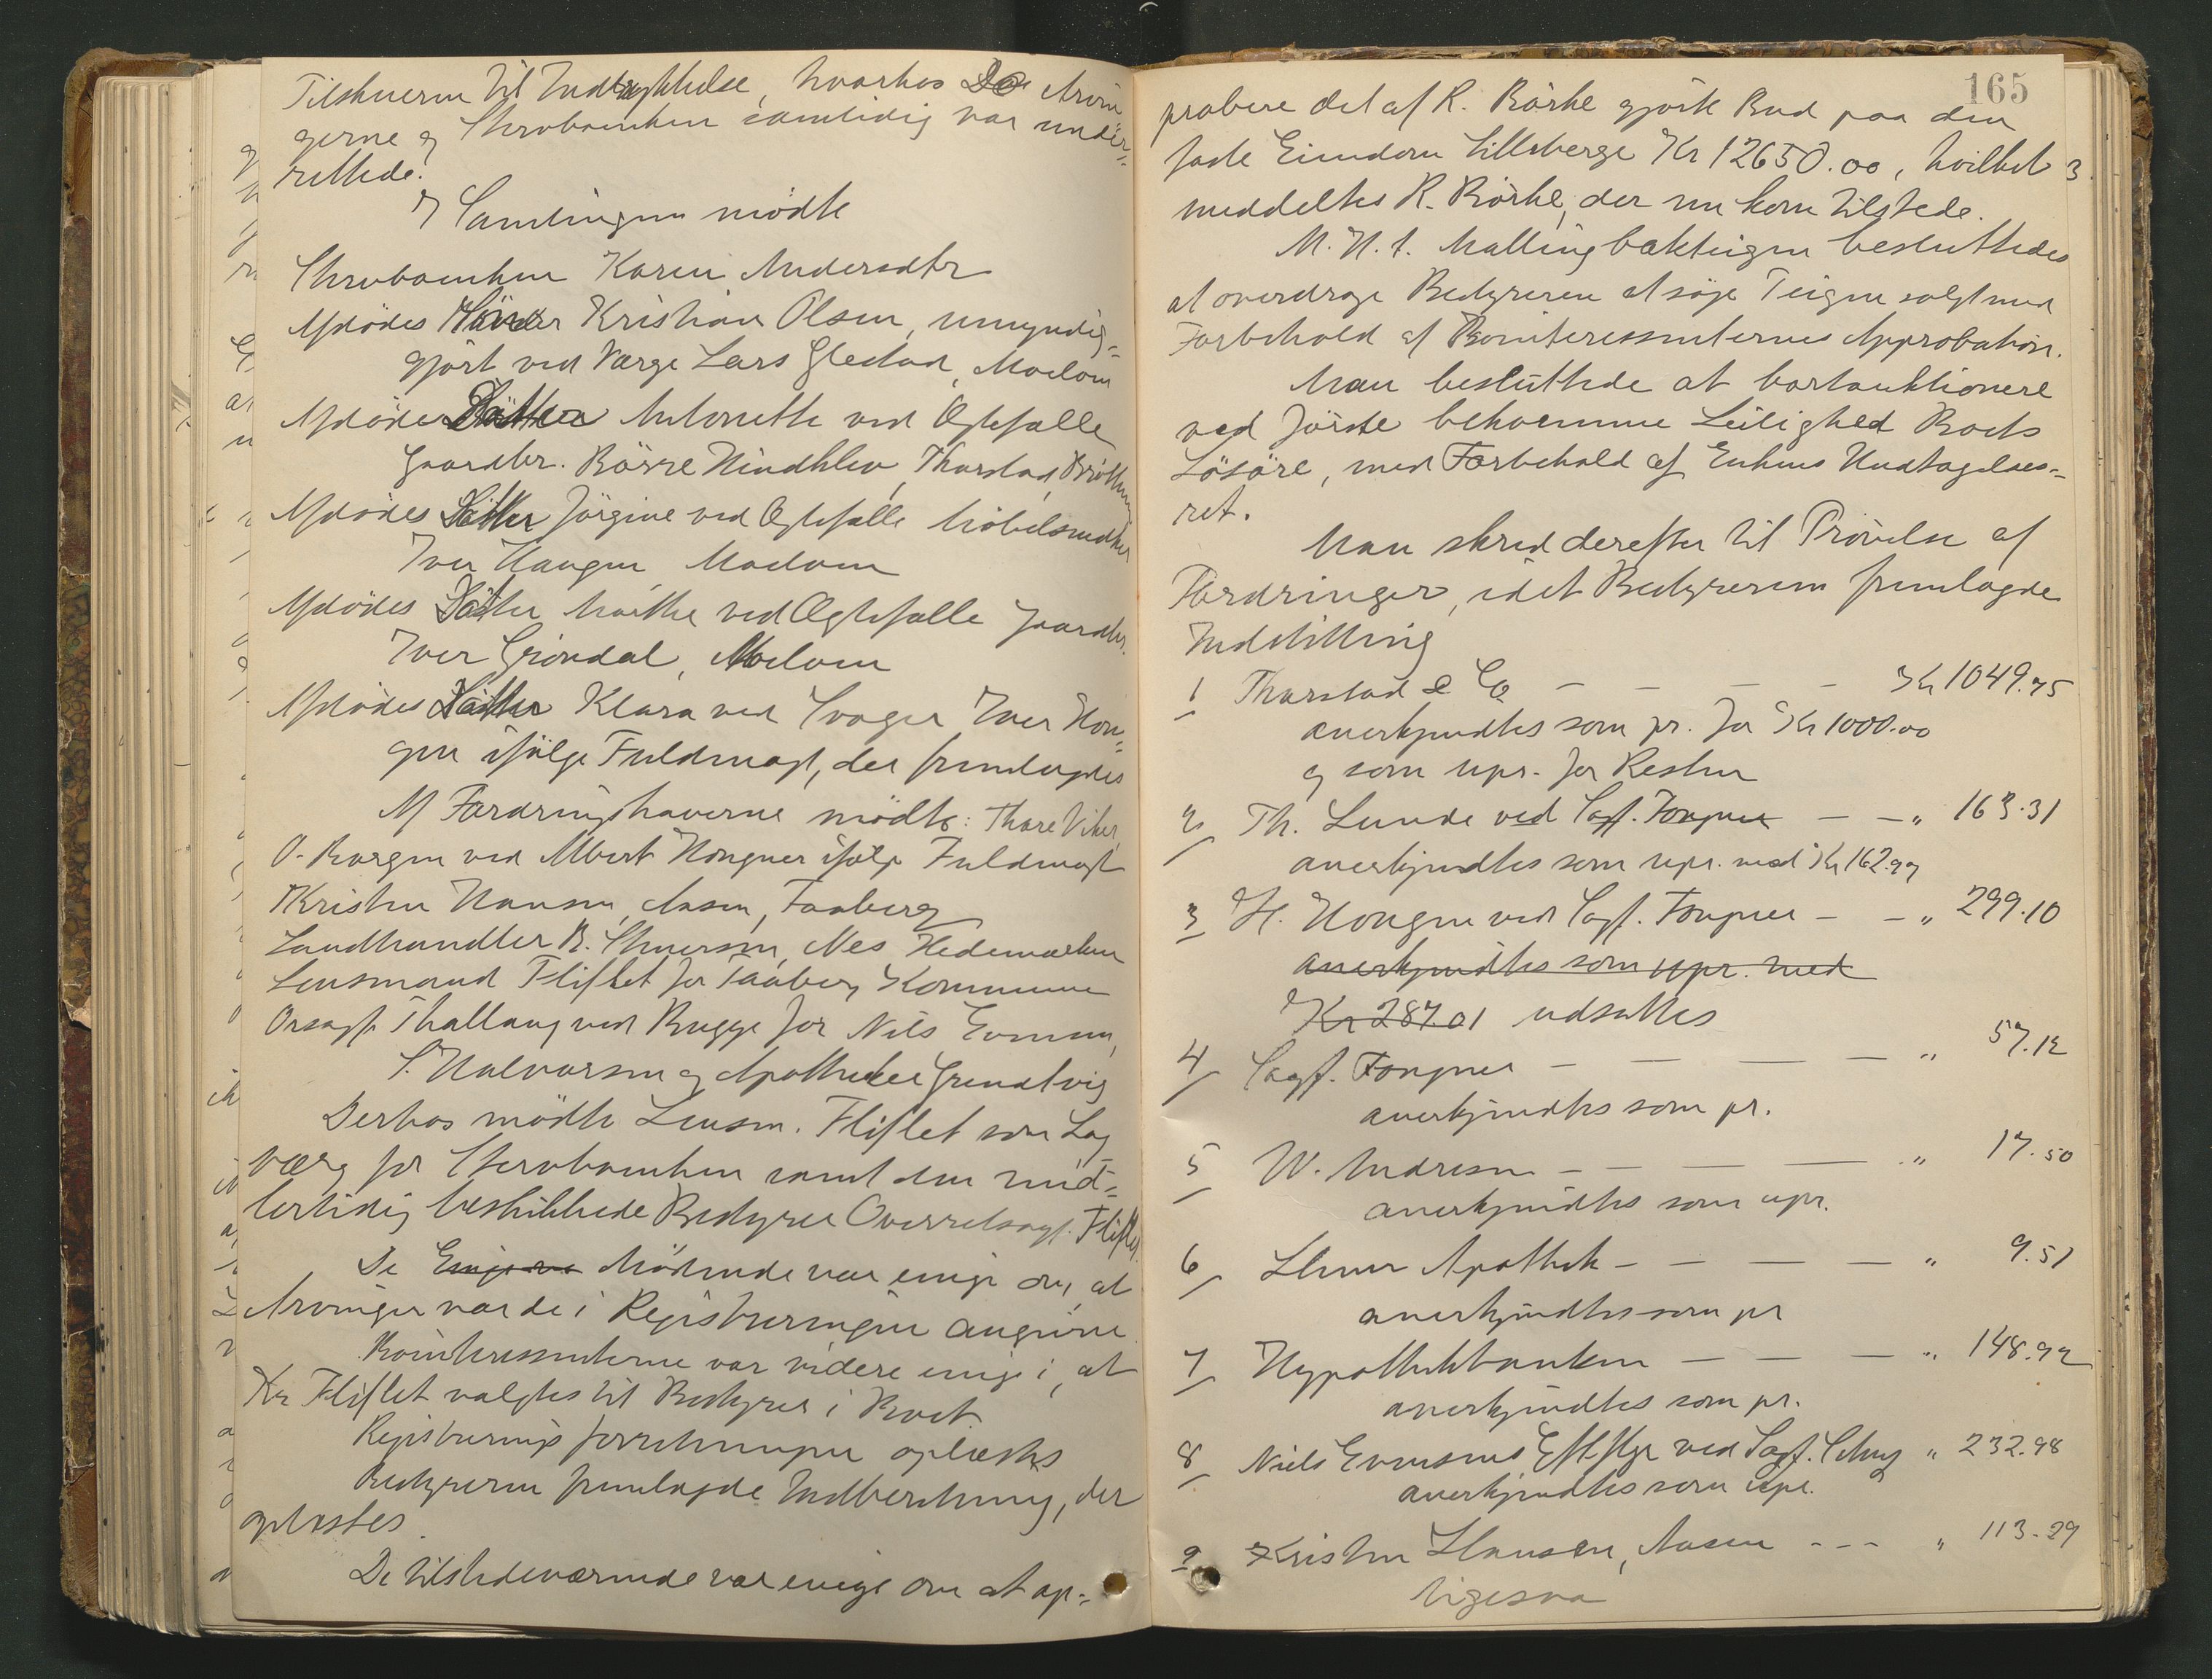 Tilskueren til Indrykkelse, hvorhos De Arvin
gerne og Stervboenken samtidig var under=
rettede.
I Samlingen mödte
Stervboenken Karen Andersdtr
Afdödes Kristian Olsen, umyndig=
gjort ved Værge Lars Glestad, Moelven
Afdödes Datter Antonette ved Ægtefælle
Gaardbr. Börre Hindklev, Tharstad, Bröttum
Afdödes Datter Jörgine ved Ægtefælle Möbelsnedker
Iver Haugen Moelven
Afdödes Datter Marthe ved Ægtefælle Gaardbr.
Iver Gröndal, Moelven
Afdödes Datter Klara ved Svoger Iver Hau=
gen ifölge Fuldmagt, der fremlagdes
Af Fordringshaverne mödte: Thore Viker,
O. Bergen ved Albert Hongner ifölge Fuldmagt
Kristen Hansen, Aasen, Faaberg
Landhandler B. Stuersen, Nes Hedemarken
Lensmand Fliflet for Faaberg Kommune
Orsagf. Thallaug ved Bugge for Nils Evensen,
S. Halvorsen og Apotheker Grundtvig
Derhos mödte Lensm. Fliflet som Lag
værg for Stervboenken samt den mid=
lertidig beskikkede Bestyrer Overretssagf. Fliflet.
De Mödende var enige om, at
Arvinger var de i Registreringen angivne.
Bointeressenterne var videre enige i, at
Kr Fliflet valgtes til Bestyrer i Boet.
Registreringsforretningen oplæstes
Bestyreren fremlagde Indberetning, der
oplæstes.
De tilstedeværende var enige om at ap=
165
probere det af R. Börke gjorte Bud paa den
faste Eiendom Lillsberge Kr 12650.00, hvilket
meddeltes R. Börke, der nu kom tilstede.
M.H.t. Mallingbækteigen besluttedes
at overdrage Bestyreren at söge Teigen solgt med
Forbehold af Bointeressenternes Approbation.
Man besluttede at bortauktionere
ved förste bekvemme Leilighed Boets
Lösöre, med Forbehold af Enkens Undtagelses=
ret.
Man skred derefter til Prövelse af
Fordringer, idet Bestyreren fremlagde
Indstilling
1 Tharstad & Co — — — — Kr 1049.75
anerkjendtes som pr. for Kr 1000.00
og som upr. for Resten
2 Th. Lunde ved Sagf. Fougner — — " 163.31
anerkjendtes som upr. med Kr 162.97
3 H. Hougen ved Sagf. Fougner — — " 299.10
anerkjendtes som upr. med
Kr 287.01 udsattes
4 Sagf. Fougner — — — — " 57.12
anerkjendtes som pr.
5 W. Andresen — — — — " 17.50
anerkjendtes som upr.
6 Lhmr Apothek — — — — " 9.51
anerkjendtes som pr
7 Hypothekbanken — — — " 148.92
anerkjendtes som pr.
8 Niels Evensens Eftflge ved Sagf. " 232.98
anerkjendtes som upr.
9 Kristen Hansen, Aasen - - - " 113.29
ligesaa